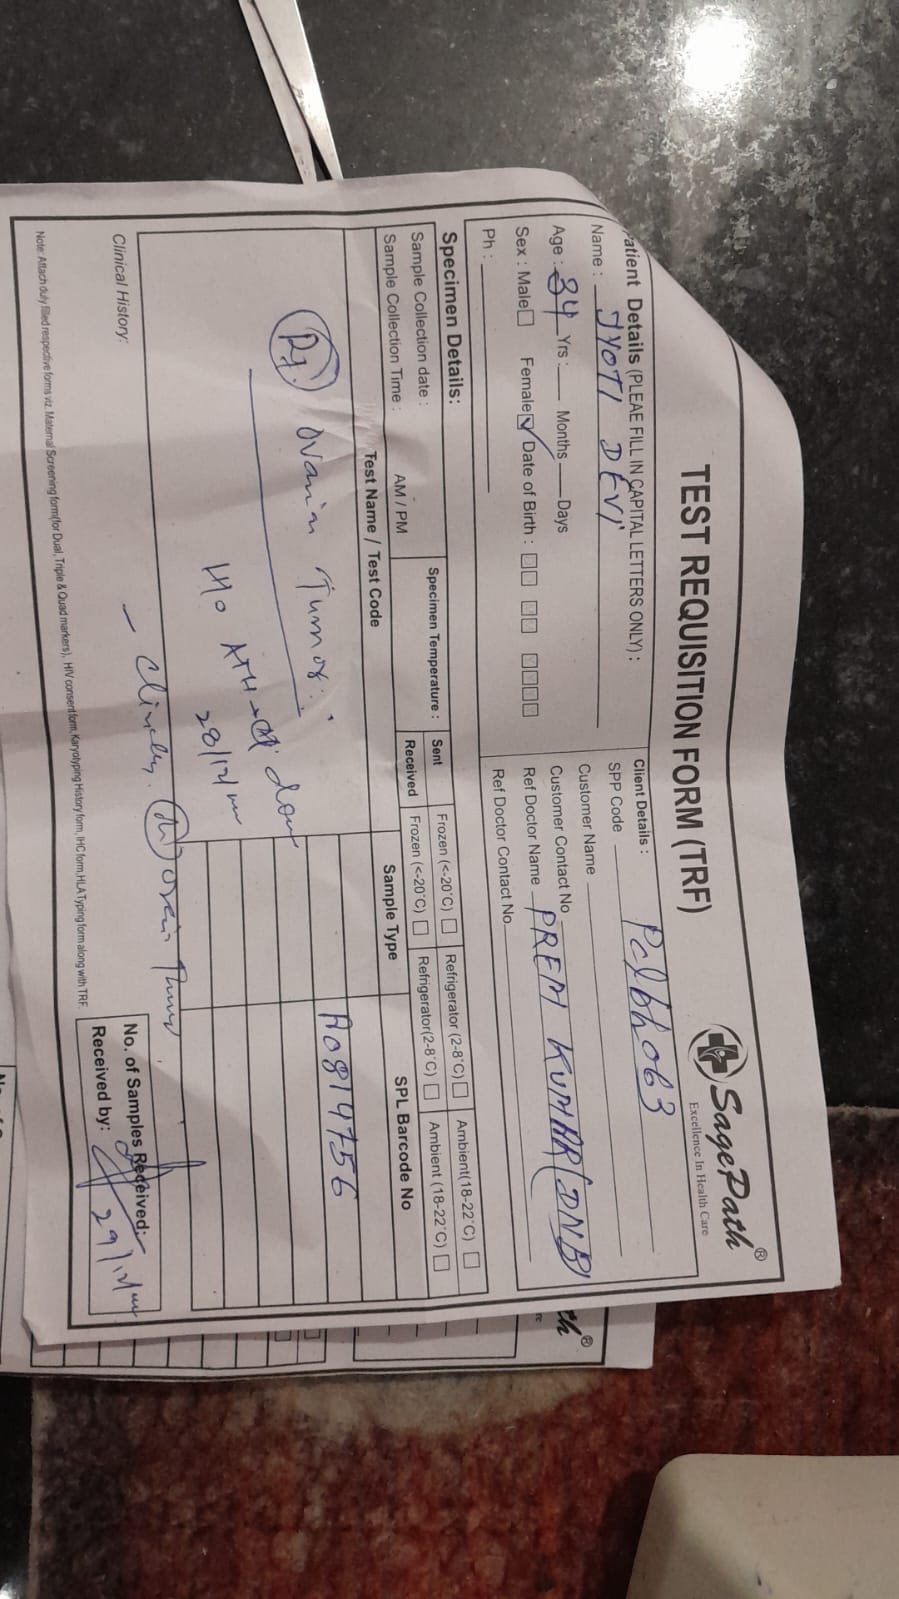 TEST REQUISITION FORM (TRF)
SagePath®
Excellence In Health Care
Patient Details (PLEAE FILL IN CAPITAL LETTERS ONLY) :
Name : JYOTI DEVI
Age : 34 Yrs : Months Days
Sex : Male Female Date of Birth :
Ph :
Client Details :
SPP Code
Customer Name
Customer Contact No
Ref Doctor Name PREM KUMAR (DNB)
Ref Doctor Contact No
Specimen Details:
Sample Collection date :
Sample Collection Time : AM / PM
Specimen Temperature :
Sent Frozen (<-20°C) Refrigerator (2-8°C) Ambient(18-22°C)
Received Frozen (<-20°C) Refrigerator(2-8°C) Ambient (18-22°C)
Test Name / Test Code Sample Type SPL Barcode No
A0814756
Rt. Ovarian Tumor
H/o
28/12/
- Clinically
Clinical History:
No. of Samples Received:
Received by: 29/12/
Note: Attach duly filled respective forms viz. Maternal Screening form(for Dual, Triple & Quad markers), HIV consent form, Karyotyping History form, IHC form,HLA Typing form along with TRF.
th®